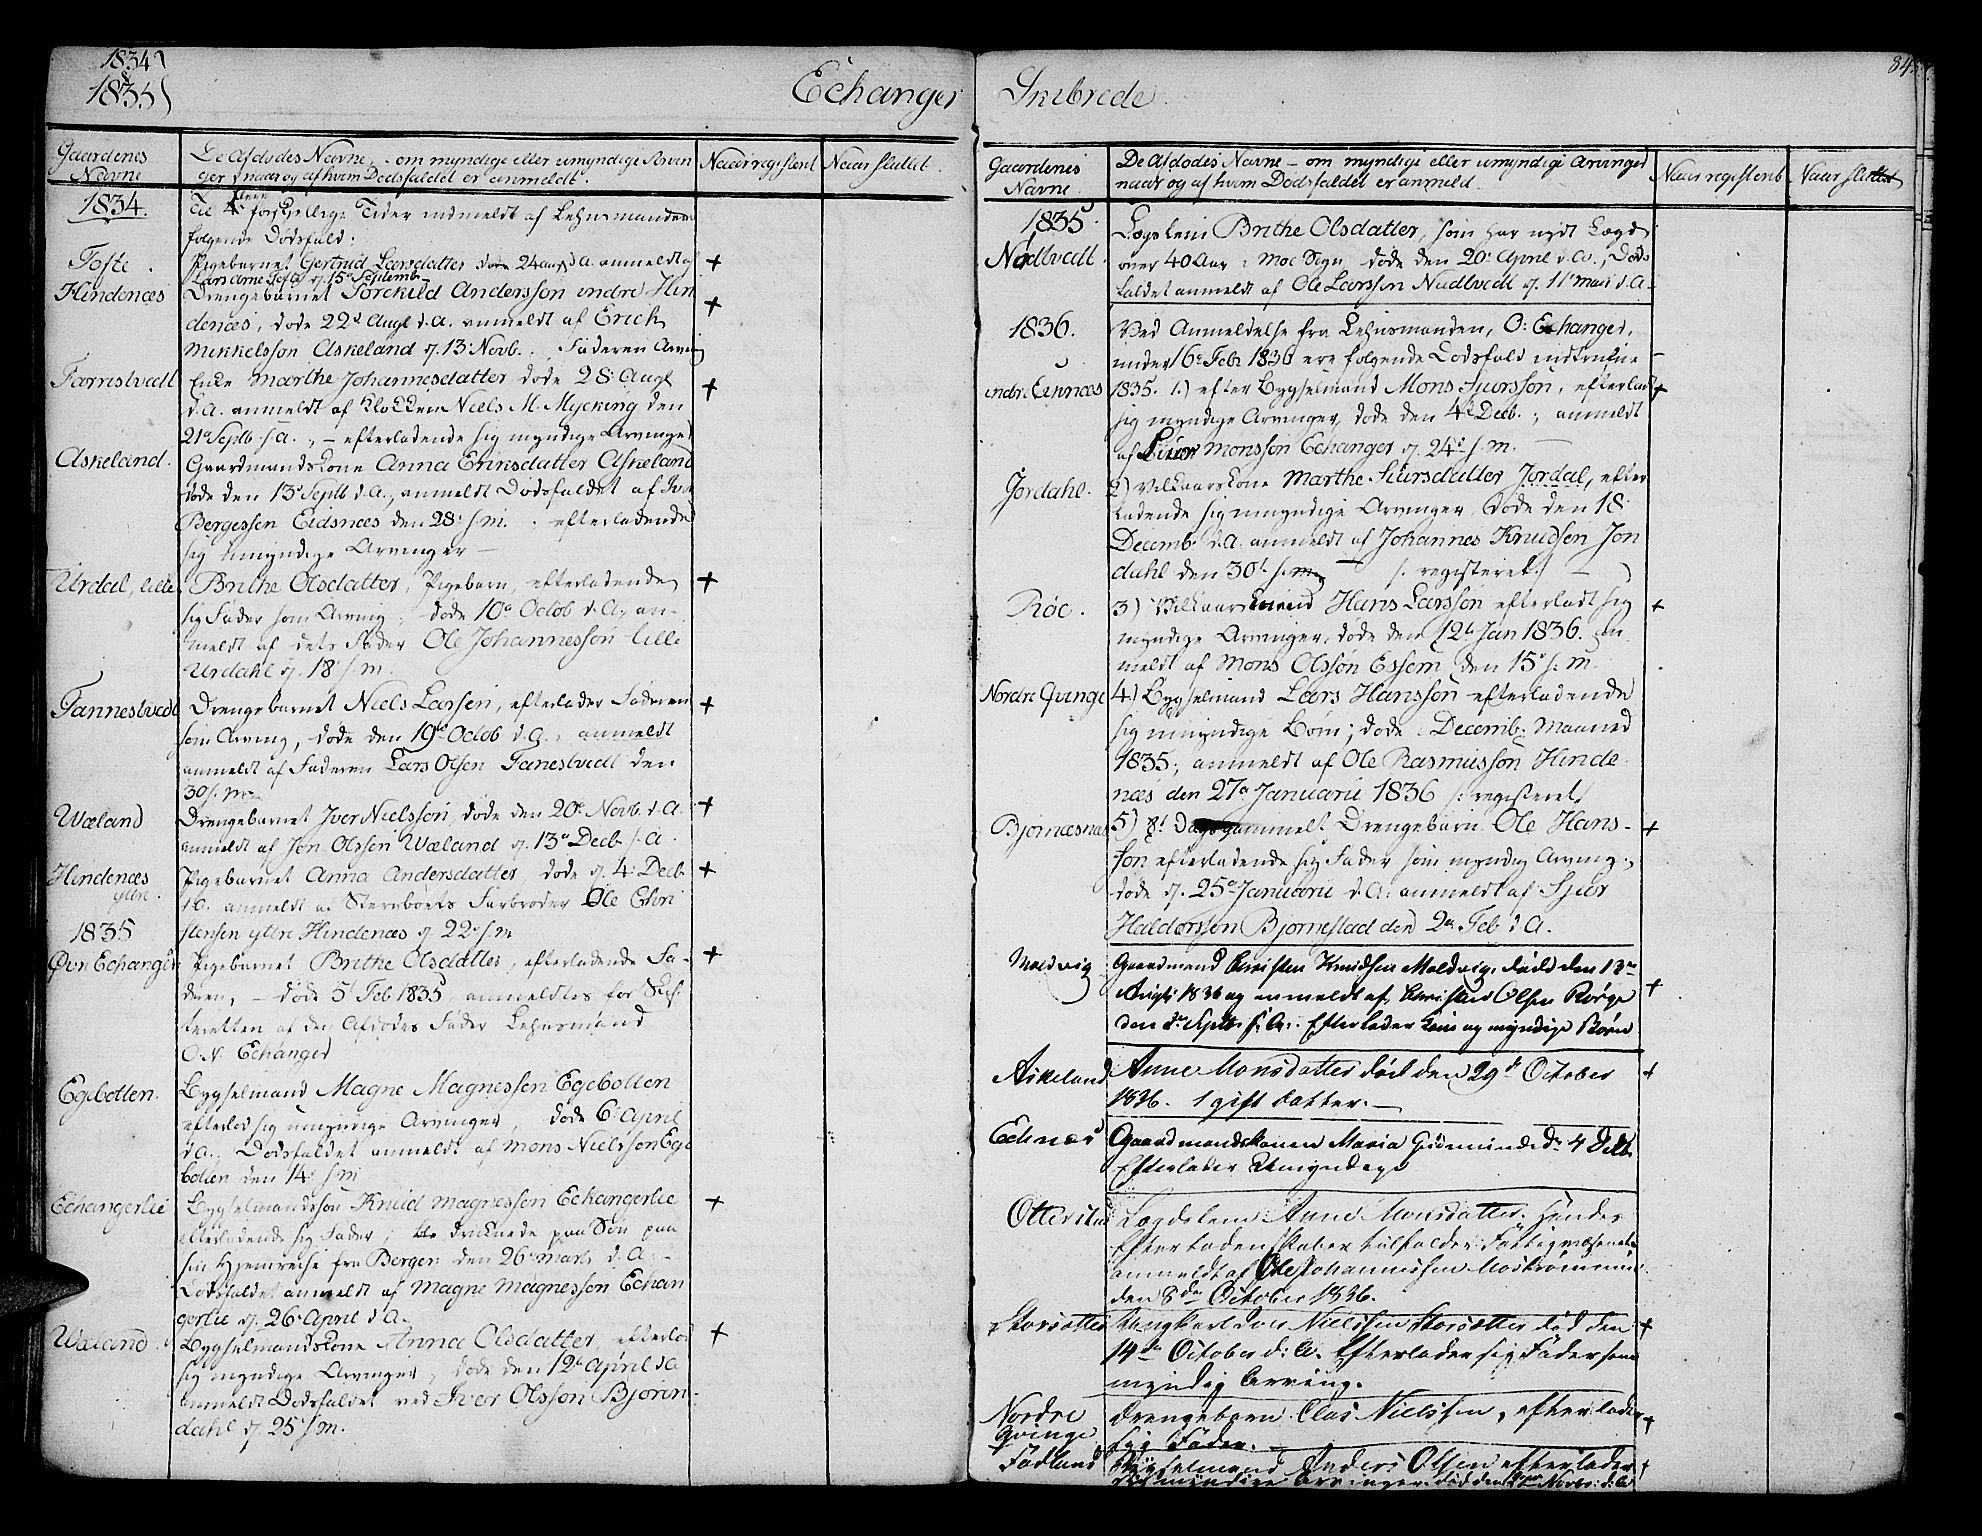 1834
&
1835
Echanger
Gaardenes
Navne
De Afdødes Navne, - om myndige eller umyndige Arvin
ger, naar og af hvem Dødsfaldet er anmeldt.
Naar registert
Naar sluttet.
1834.
Til 4 forskjellige Tider indmeldt af Lehnsmanden
følgende Dødsfald:
Tofte.
Pigebarnet Gertrud Larsdatter døde 24 aug d.A. anmeldt af
Lars Arne Tofte d. 15 Septemb.
Hindenæs
Drengebarnet Torekild Andersson indre Hin
denæs, døde 22d Augt d.A. anmeldt af Erick
Mikkelsson Askeland d. 13 Novb. Faderen Arving
Farrestvedt
Enke Marthe Johannesdatter døde 28 Augt
d.A. anmeldt af Klokken Niels M. Mycking den
21d Septb. s.A. - efterladende sig myndige Arvinger
Askeland.
Gaardmandskone Anna Eriksdatter Askeland
døde den 13 Septb d.A., anmeldt Dødsfaldet af
Bergessen Eidsnæs den 28 s.m. efterladende
sig umyndige Arvinger -
Urdal, lille
Brithe Olsdatter, Pigebarn, efterladende
sig Fader som Arving; døde 10d Octob d.A. an-
meldt af dets Fader Ole Johannesson lille
Urdahl d. 18 s.m.
Tannestvedt
Drengebarnet Niels Larsen, efterlader Faderen
som Arving, døde den 19d Octob d.A. anmeldt
anmeldt af Faderen Lars Olsen Tanestvedt den
30 s.m.
Wæland
Drengebarnet Iver Nielssøn, døde den 20d Novb. d.A.
anmeldt af Jon Olssøn Wæland d. 13d Decb s.A.
Hindenæs
yttre.
Pigebarnet Anna Andersdatter, døde d. 4 Decb
d.A. anmeldt af Farbroder Ole Chri
stensen yttre Hindenæs d. 22 s.m
1835
Øvn Echanger
Pigebarnet Brithe Olsdatter, efterladende Fa-
deren, - døde 5t Feb 1835, anmeldtes for Skif-
teretten af den Afdødes Fader Lehnsmand
O.N. Echanger
Egebotten.
Bygselmand Magne Magnessen Egebotten
efterlod sig umyndige Arvinger, døde 6 April
d.A., Dødsfaldet anmeldt af Mons Nielsson Ege
botten den 14 s.m
Echangerlie
Bygselmandssøn Knud Magnesson Echangerlie
efterladende sig Fader; druknede paa Søn paa
sin Hjemreise fra Bergen den 26 Marts d.A. -
Dødsfaldet anmeldt af Magne Magnesson Echan
gerlie d. 26 April d.A.
Wæland.
Bygselmandskone Anna Olsdatter, efterlod
sig myndige Arvinger, døde den 12d April d.A
anmeldt Dødsfaldet ved Iver Olsson Bjørn
dahl d. 25 s.m.
Skibrede.
845
Gaardenes
Navne.
De Afdødes Navne - om myndige eller umyndige Arvinger
naar og af hvem Dødsfaldet er anmeld.
Naar registert
Naar sluttet
1835.
Nødtvedt.
Lægslem Brithe Olsdatter, som har nydt Lægd
over 40 Aar i Moe Sogn døde den 20 April d.A., Døds
faldet anmeldt af Ole Larsson Nødtvedt d. 11t mai d.A.
1836.
Ved Anmeldelse fra Lehnsmanden, O: Echanger,
under 16 Feb 1836 ere følgende Dødsfald indtrufne -
indre Eennæs
1835. 1.) efter Bygselmand Mons Siursson, efterlad
sig myndige Arvinger, døde den 4d Decb., anmeldt
af Siur Monsson Echanger d. 24d s.m.
Jordahl.
2) Vilkaarskone Marthe Siursdatter Jordal, efter
ladende sig umyndige Arvinger, døde den 18
Decemb. d.A. anmeldt af Johannes Knudsen Jor
dahl den 30t s.m. /: registeret :/
Röe.
3) Vilkaarsmand Hans Larssøn efterladt sig
myndige Arvinger, døde den 12t Jan 1836. an
meldt af Mons Olssøn Essem den 15 s.m.
Nordre Qvinge
4) Bygselmand Lars Hanssøn efterladende
sig umyndige Børn; døde i Decemb. Maaned
1835, anmeldt af Ole Rasmussøn Hinde
næs den 27d Januarii 1836 /: registeret/
Bjørnæsnæs
5) 8t Dags gammelt Drengebarn Ole Hans-
søn efterladende sig Fader som myndig Arving.,
døde d. 25d Januarii d.A. anmeldt af Sjur
Haldorssen Bjørnestad den 2d Feb d.A.
Moldvig
Gaardmand Christen Knudsen Moldvig. død den 13de
August 1836 og anmeldt af Christen Olsen Rørge
den Septb. s.A. Efterlader Kone og myndige Børn
Askeland
Anne Monsdatter død den 29d October
1836. 1 gift datter. -
Echnæs
Gaardmandskonen Maria Gudmundsd. 4 Decb.
Efterlader Umyndige
Otterstad
Lægdslem Anne Monsdatter, hendes
Efterladenskaber tilfalder Fattigvæsenet
anmeldt af Ole Johannessen
den 8de October 1836.
Storsætter
Ungkarl Iver Nielssen Storsætter død den
14de October d:A. Efterlader sig Fader som
myndig Arving.
Nordre
Qvinge
Drengebarn Clas Nielssen, efterlader
sig Fader. -
Fødland
Bygselmand Anders Olsen efterlader
sig myndige Arvinger. død den Novbr: d:A